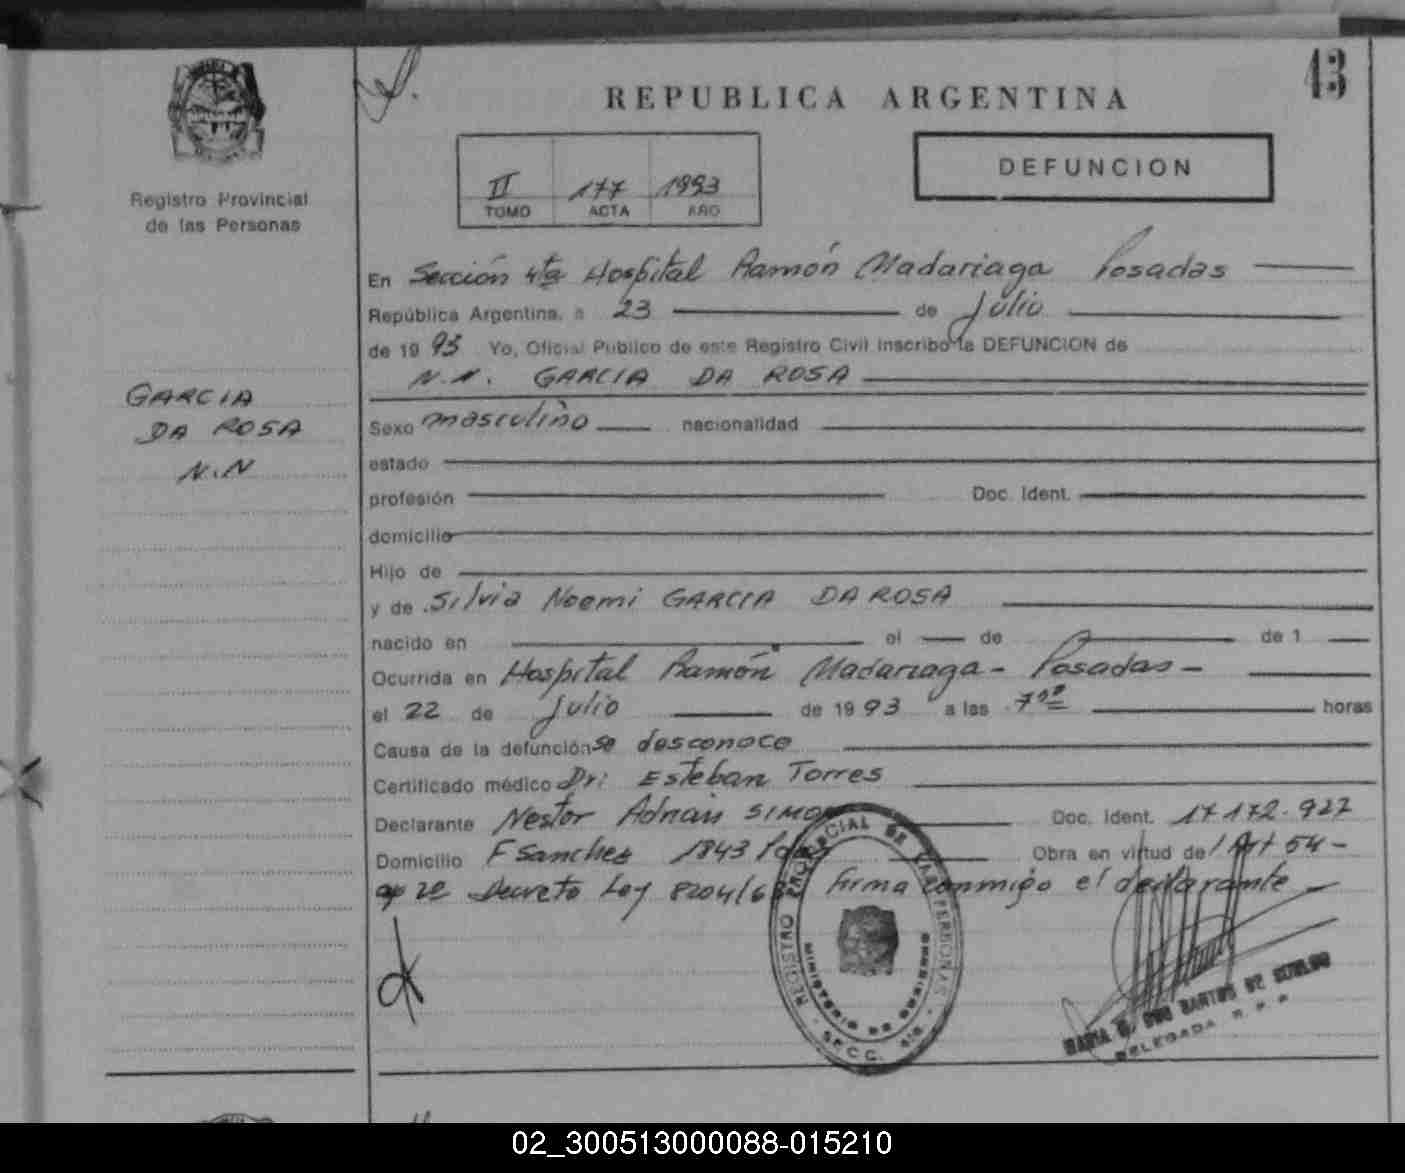 43
REPUBLICA ARGENTINA
DEFUNCION
II 177 1993
TOMO ACTA AÑO
Registro Provincial
de las Personas
GARCIA
DA ROSA
N.N
En Sección 4ta Hospital Ramón Madariaga Posadas
República Argentina, a 23 de Julio
de 1993 Yo, Oficial Público de este Registro Civil inscribo la DEFUNCION de
N.N. GARCIA DA ROSA
Sexo masculino nacionalidad
estado
profesión Doc. Ident.
domicilio
Hijo de
y de Silvia Noemi GARCIA DA ROSA
nacido en el de de 1
Ocurrida en Hospital Ramón Madariaga - Posadas -
el 22 de Julio de 1993 a las horas
Causa de la defunción se desconoce
Certificado médico Dr: Esteban Torres
Declarante Nestor Adrian Doc. Ident. 17.172.927
Domicilio F Sanchez 1843 Obra en virtud de l Art 54 -
Decreto Ley 8204/6 Firma conmigo el declarante
REGISTRO PROVINCIAL DE LAS PERSONAS
MINISTERIO DE GOBIERNO
SECC. 4ta
DELEGADA R. P. P.
02_300513000088-015210